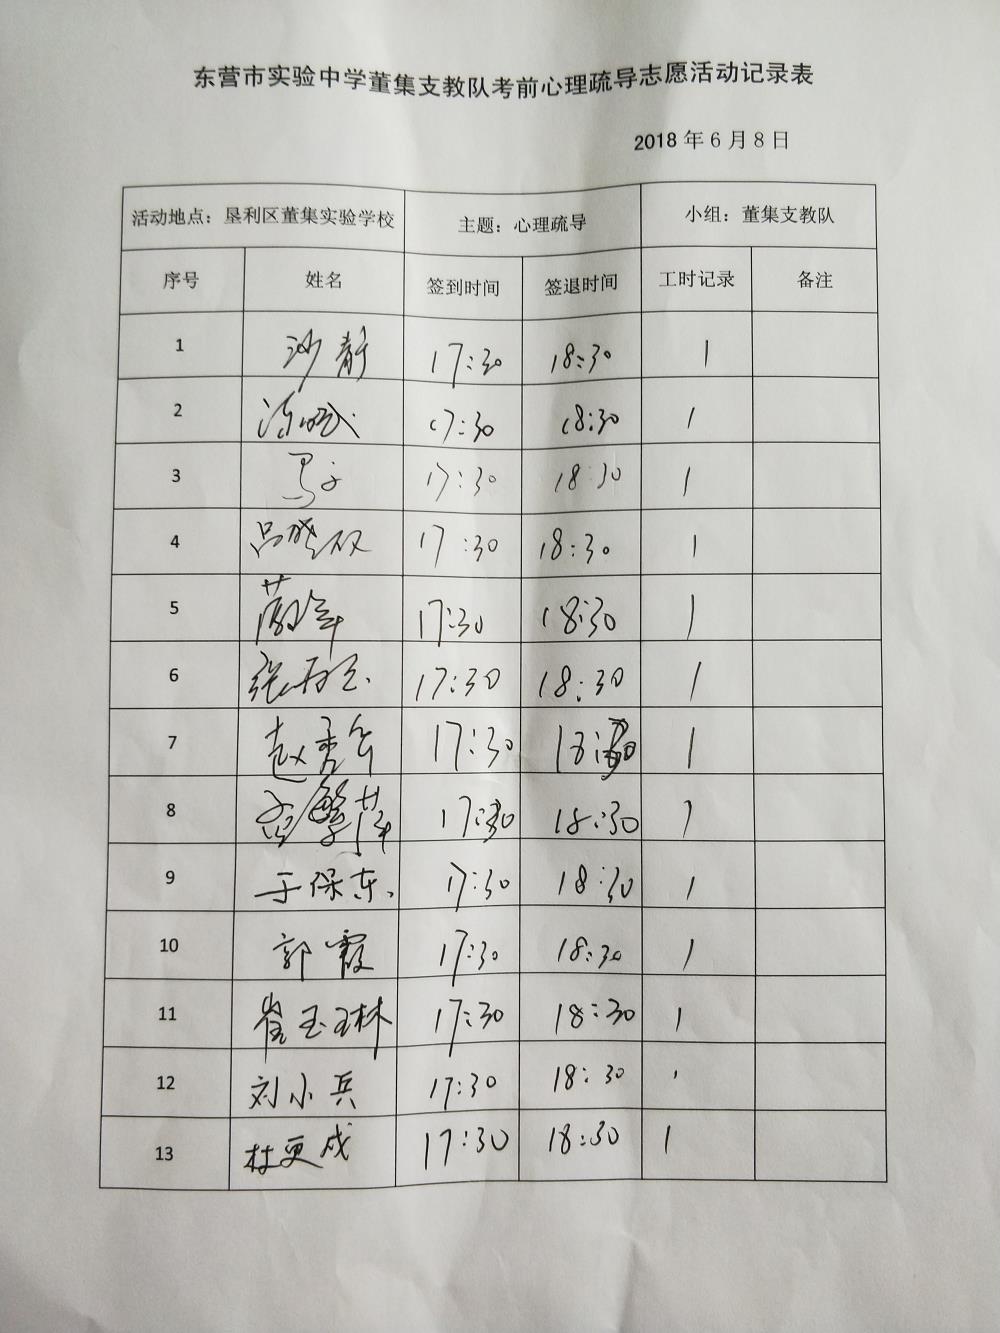 东营市实验中学董集支教队考前心理疏导志愿活动记录表
2018 年 6 月 8 日
活动地点：垦利区董集实验学校 主题：心理疏导 小组：董集支教队
序号 姓名 签到时间 签退时间 工时记录 备注
1 沙静 17:30 18:30 1
2 17:30 18:30 1
3 17:30 18:30 1
4 吕晓双 17:30 18:30 1
5 17:30 18:30 1
6 张 17:30 18:30 1
7 赵秀 17:30 18:30 1
8 17:30 18:30 1
9 于保东 17:30 18:30 1
10 郭霞 17:30 18:30 1
11 崔玉林 17:30 18:30 1
12 刘小兵 17:30 18:30
13 杜更成 17:30 18:30 1